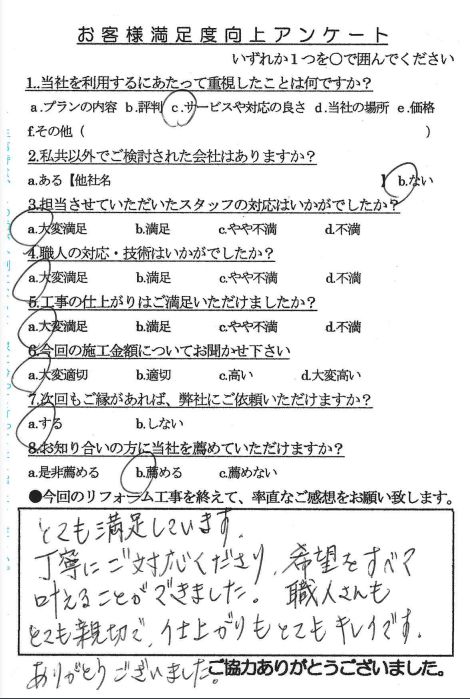 お客様満足度向上アンケート
いずれか１つを〇で囲んでください
1..当社を利用するにあたって重視したことは何ですか？
a.プランの内容 b.評判 c.サービスや対応の良さ d.当社の場所 e.価格
f.その他（ ）
2.私共以外でご検討された会社はありますか？
a.ある【他社名 】 b.ない
3.担当させていただいたスタッフの対応はいかがでしたか？
a.大変満足 b.満足 c.やや不満 d.不満
4.職人の対応・技術はいかがでしたか？
a.大変満足 b.満足 c.やや不満 d.不満
5.工事の仕上がりはご満足いただけましたか？
a.大変満足 b.満足 c.やや不満 d.不満
6.今回の施工金額についてお聞かせ下さい
a.大変適切 b.適切 c.高い d.大変高い
7.次回もご縁があれば、弊社にご依頼いただけますか？
a.する b.しない
8.お知り合いの方に当社を薦めていただけますか？
a.是非薦める b.薦める c.薦めない
●今回のリフォーム工事を終えて、率直なご感想をお願い致します。
とても満足しています。
丁寧にご対応くださり、希望をすべて
叶えることができました。職人さんも
とても親切で、仕上がりもとてもキレイです。
ありがとうございました。
ご協力ありがとうございました。